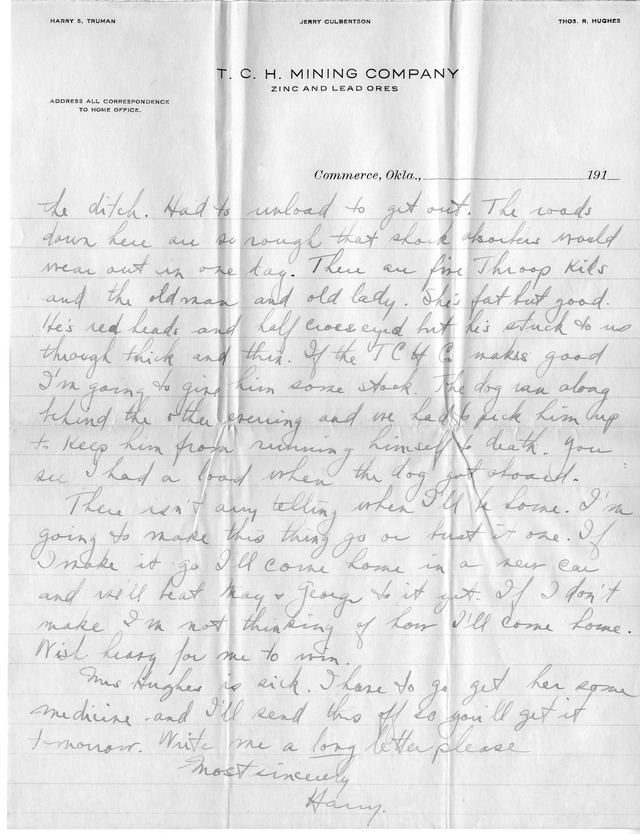 HARRY S. TRUMAN JERRY CULBERTSON THOS. R. HUGHES
T. C. H. MINING COMPANY
ZINC AND LEAD ORES
ADDRESS ALL CORRESPONDENCE
TO HOME OFFICE.
Commerce, Okla., 191
the ditch. Had to unload to get out. The roads
down here are so rough that shock absorbers would
wear out in one day. There are five Throop Kids
and the old man and old lady. She's fat but good.
He's red heads and half crosseyed but he's stuck to us
through thick and thin. If the T C H Co makes good
I'm going to give him some stock. The dog ran along
behind the other evening and we had to pick him up
to keep him from running himself to death. You
see I had a load when the dog got aboard.
There isn't any telling when I'll be home. I'm
going to make this thing go or bust it one. If
I make it go I'll come home in a new car
and we'll beat May & George to it yet. If I don't
make I'm not thinking of how I'll come home.
Wish heavy for me to win.
Mrs Hughes is sick. I have to go get her some
medicine and I'll send this off so you'll get it
tomorrow. Write me a long letter please
Most sincerely
Harry.